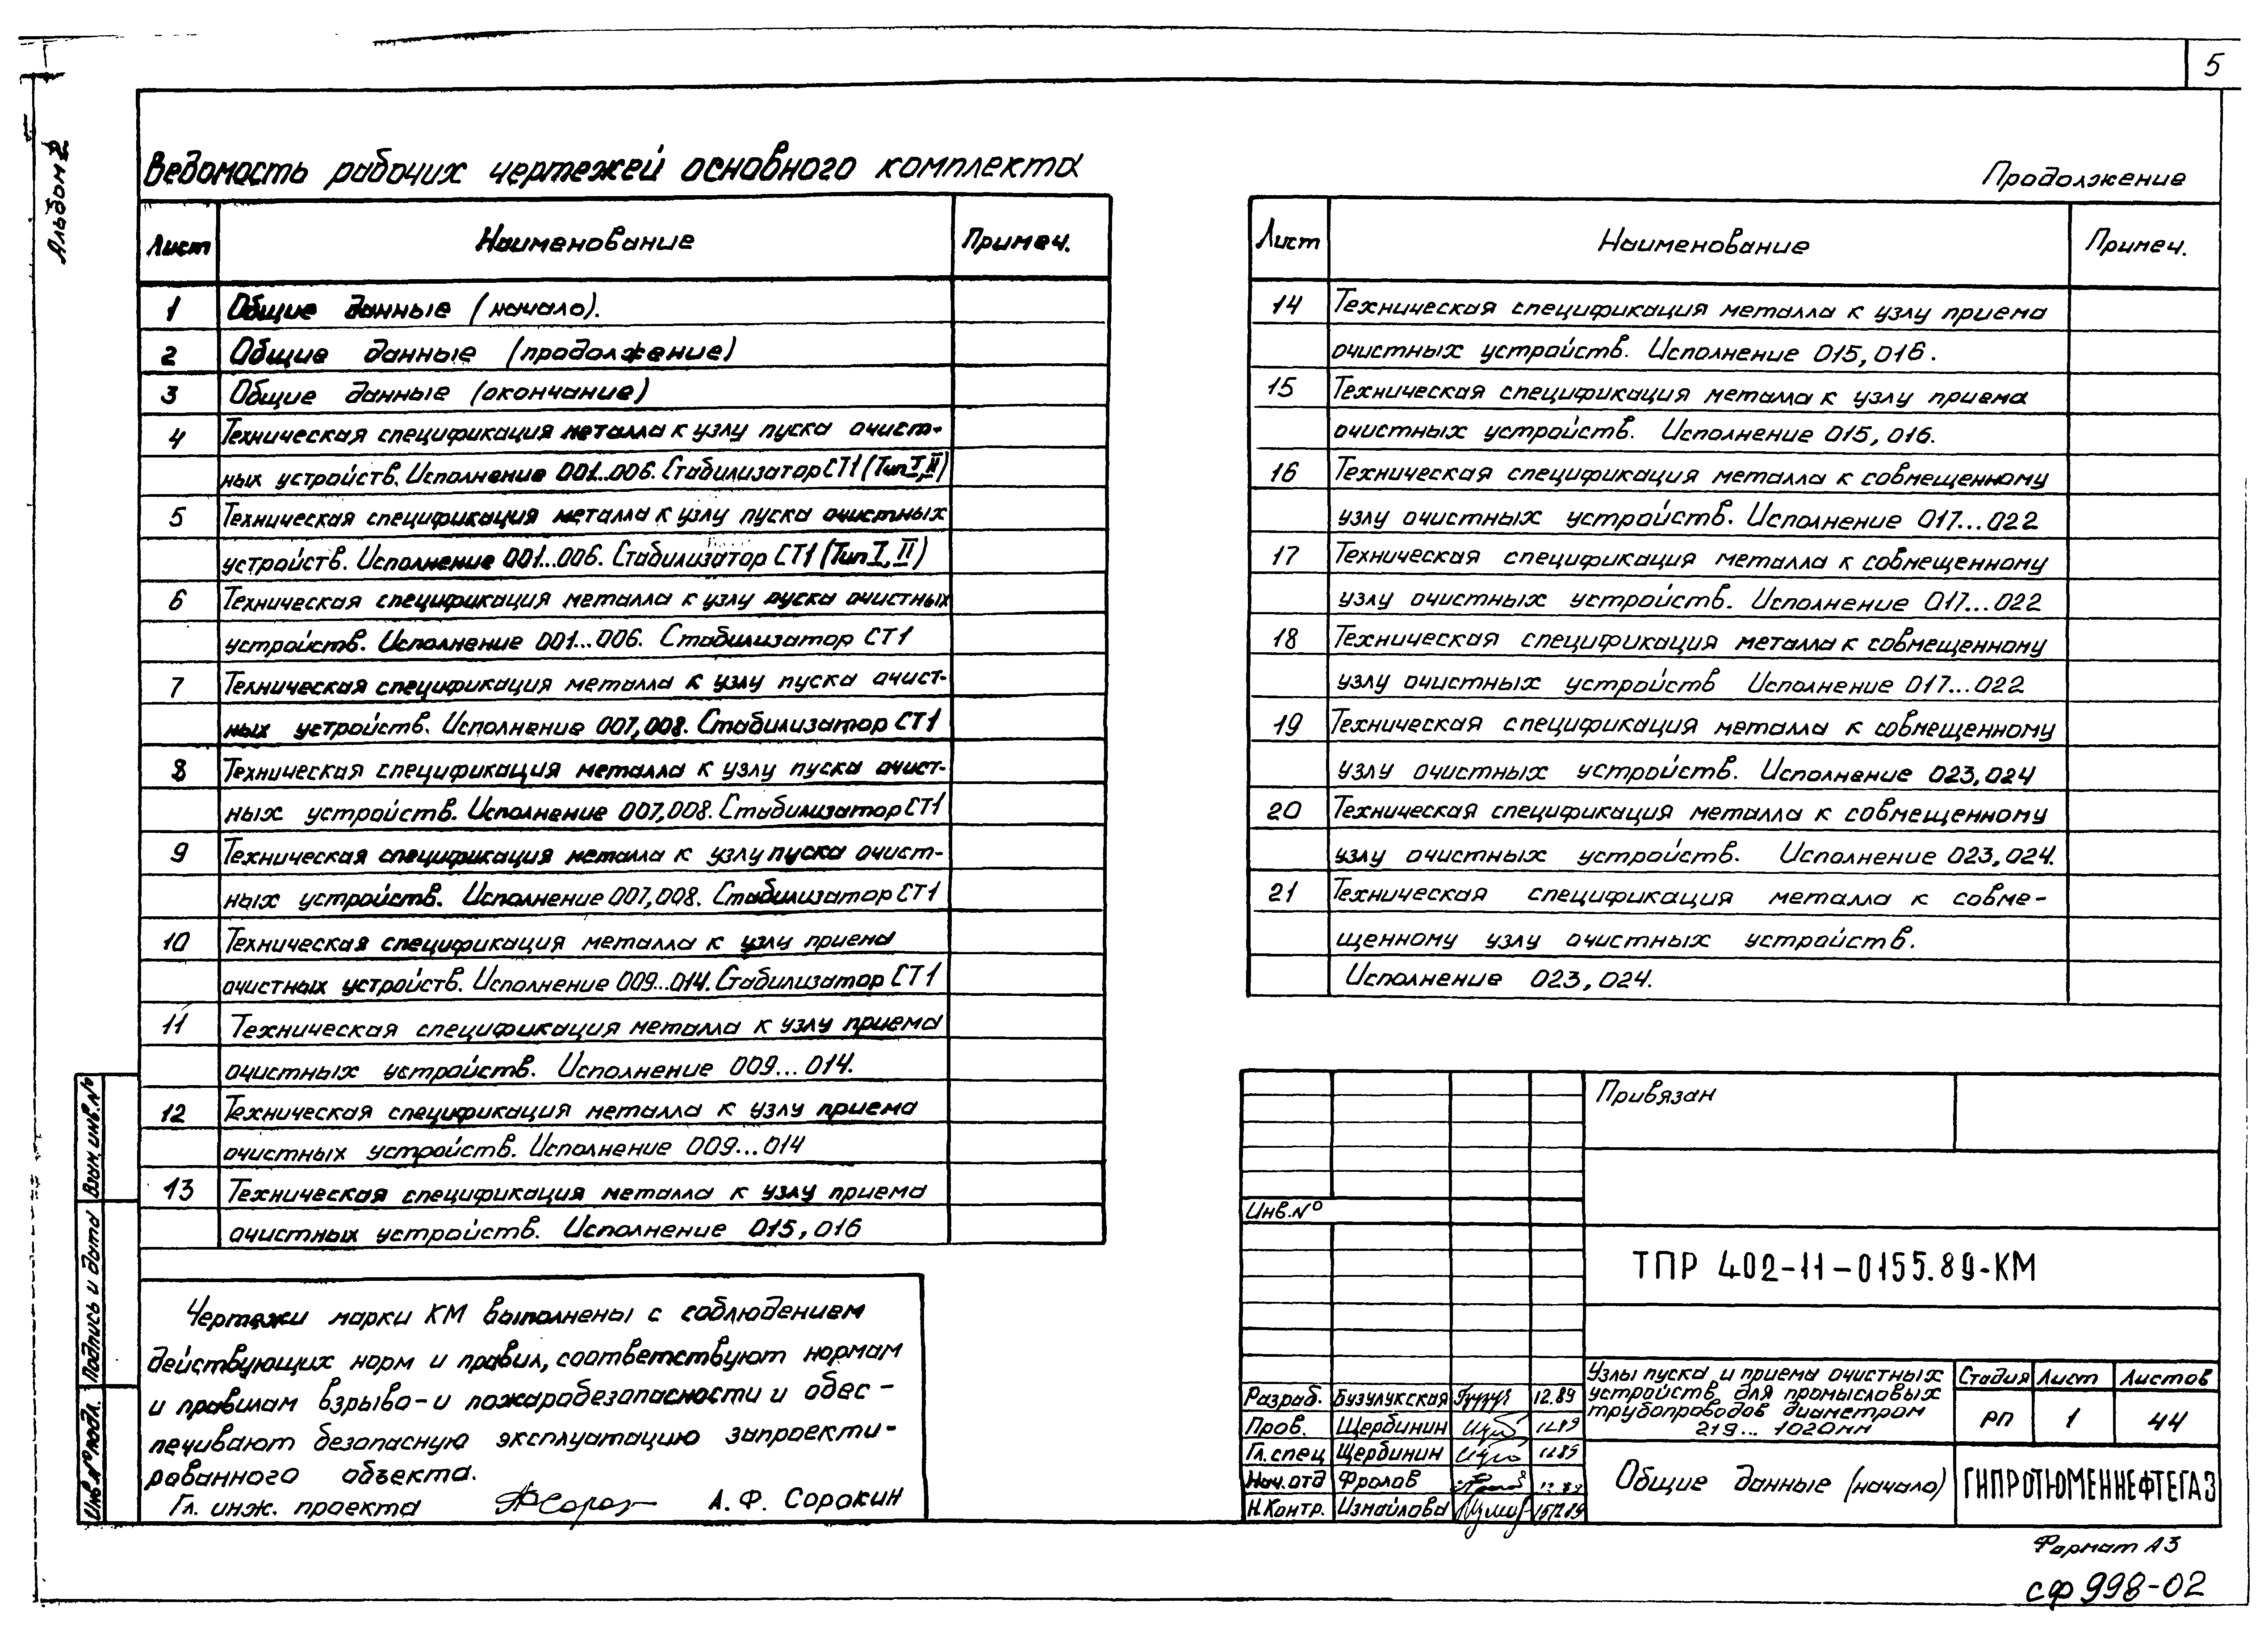 5
Альбом 2
Ведомость рабочих чертежей основного комплекта
Лист Наименование Примеч.
1 Общие данные (начало).
2 Общие данные (продолжение)
3 Общие данные (окончание)
4 Техническая спецификация металла к узлу пуска очист-
ных устройств. Исполнение 001...006. Стабилизатор СТ1 (Тип I, II)
5 Техническая спецификация металла к узлу пуска очистных
устройств. Исполнение 001...006. Стабилизатор СТ1 (Тип I, II)
6 Техническая спецификация металла к узлу пуска очистных
устройств. Исполнение 001...006. Стабилизатор СТ1
7 Техническая спецификация металла к узлу пуска очист-
ных устройств. Исполнение 007,008. Стабилизатор СТ1
8 Техническая спецификация металла к узлу пуска очист-
ных устройств. Исполнение 007,008. Стабилизатор СТ1
9 Техническая спецификация металла к узлу пуска очист-
ных устройств. Исполнение 007,008. Стабилизатор СТ1
10 Техническая спецификация металла к узлу приема
очистных устройств. Исполнение 009...014. Стабилизатор СТ1
11 Техническая спецификация металла к узлу приема
очистных устройств. Исполнение 009...014.
12 Техническая спецификация металла к узлу приема
очистных устройств. Исполнение 009...014
13 Техническая спецификация металла к узлу приема
очистных устройств. Исполнение 015, 016
Продолжение
Лист Наименование Примеч.
14 Техническая спецификация металла к узлу приема
очистных устройств. Исполнение 015, 016.
15 Техническая спецификация металла к узлу приема
очистных устройств. Исполнение 015, 016.
16 Техническая спецификация металла к совмещенному
узлу очистных устройств. Исполнение 017...022
17 Техническая спецификация металла к совмещенному
узлу очистных устройств. Исполнение 017...022
18 Техническая спецификация металла к совмещенному
узлу очистных устройств Исполнение 017...022
19 Техническая спецификация металла к совмещенному
узлу очистных устройств. Исполнение 023, 024
20 Техническая спецификация металла к совмещенному
узлу очистных устройств. Исполнение 023, 024.
21 Техническая спецификация металла к совме-
щенному узлу очистных устройств.
Исполнение 023, 024.
Чертежи марки КМ выполнены с соблюдением
действующих норм и правил, соответствуют нормам
и правилам взрыво- и пожаробезопасности и обес-
печивают безопасную эксплуатацию запроекти-
рованного объекта.
Гл. инж. проекта А. Ф. Сорокин
Взам. инв. №
Подпись и дата
Инв. № подл.
Привязан
Инв. №
ТПР 402-11-0155.89-КМ
Разраб. Бузулукская 12.89
Пров. Щербинин 12.89
Гл. спец Щербинин 12.89
Нач. отд Фролов 12.89
Н. Контр. Измайлова
Узлы пуска и приема очистных
устройств для промысловых
трубопроводов диаметром
219... 1020мм
Стадия Лист Листов
РП 1 44
Общие данные (начало)
ГИПРОТЮМЕННЕФТЕГАЗ
Формат А3
сф 998-02